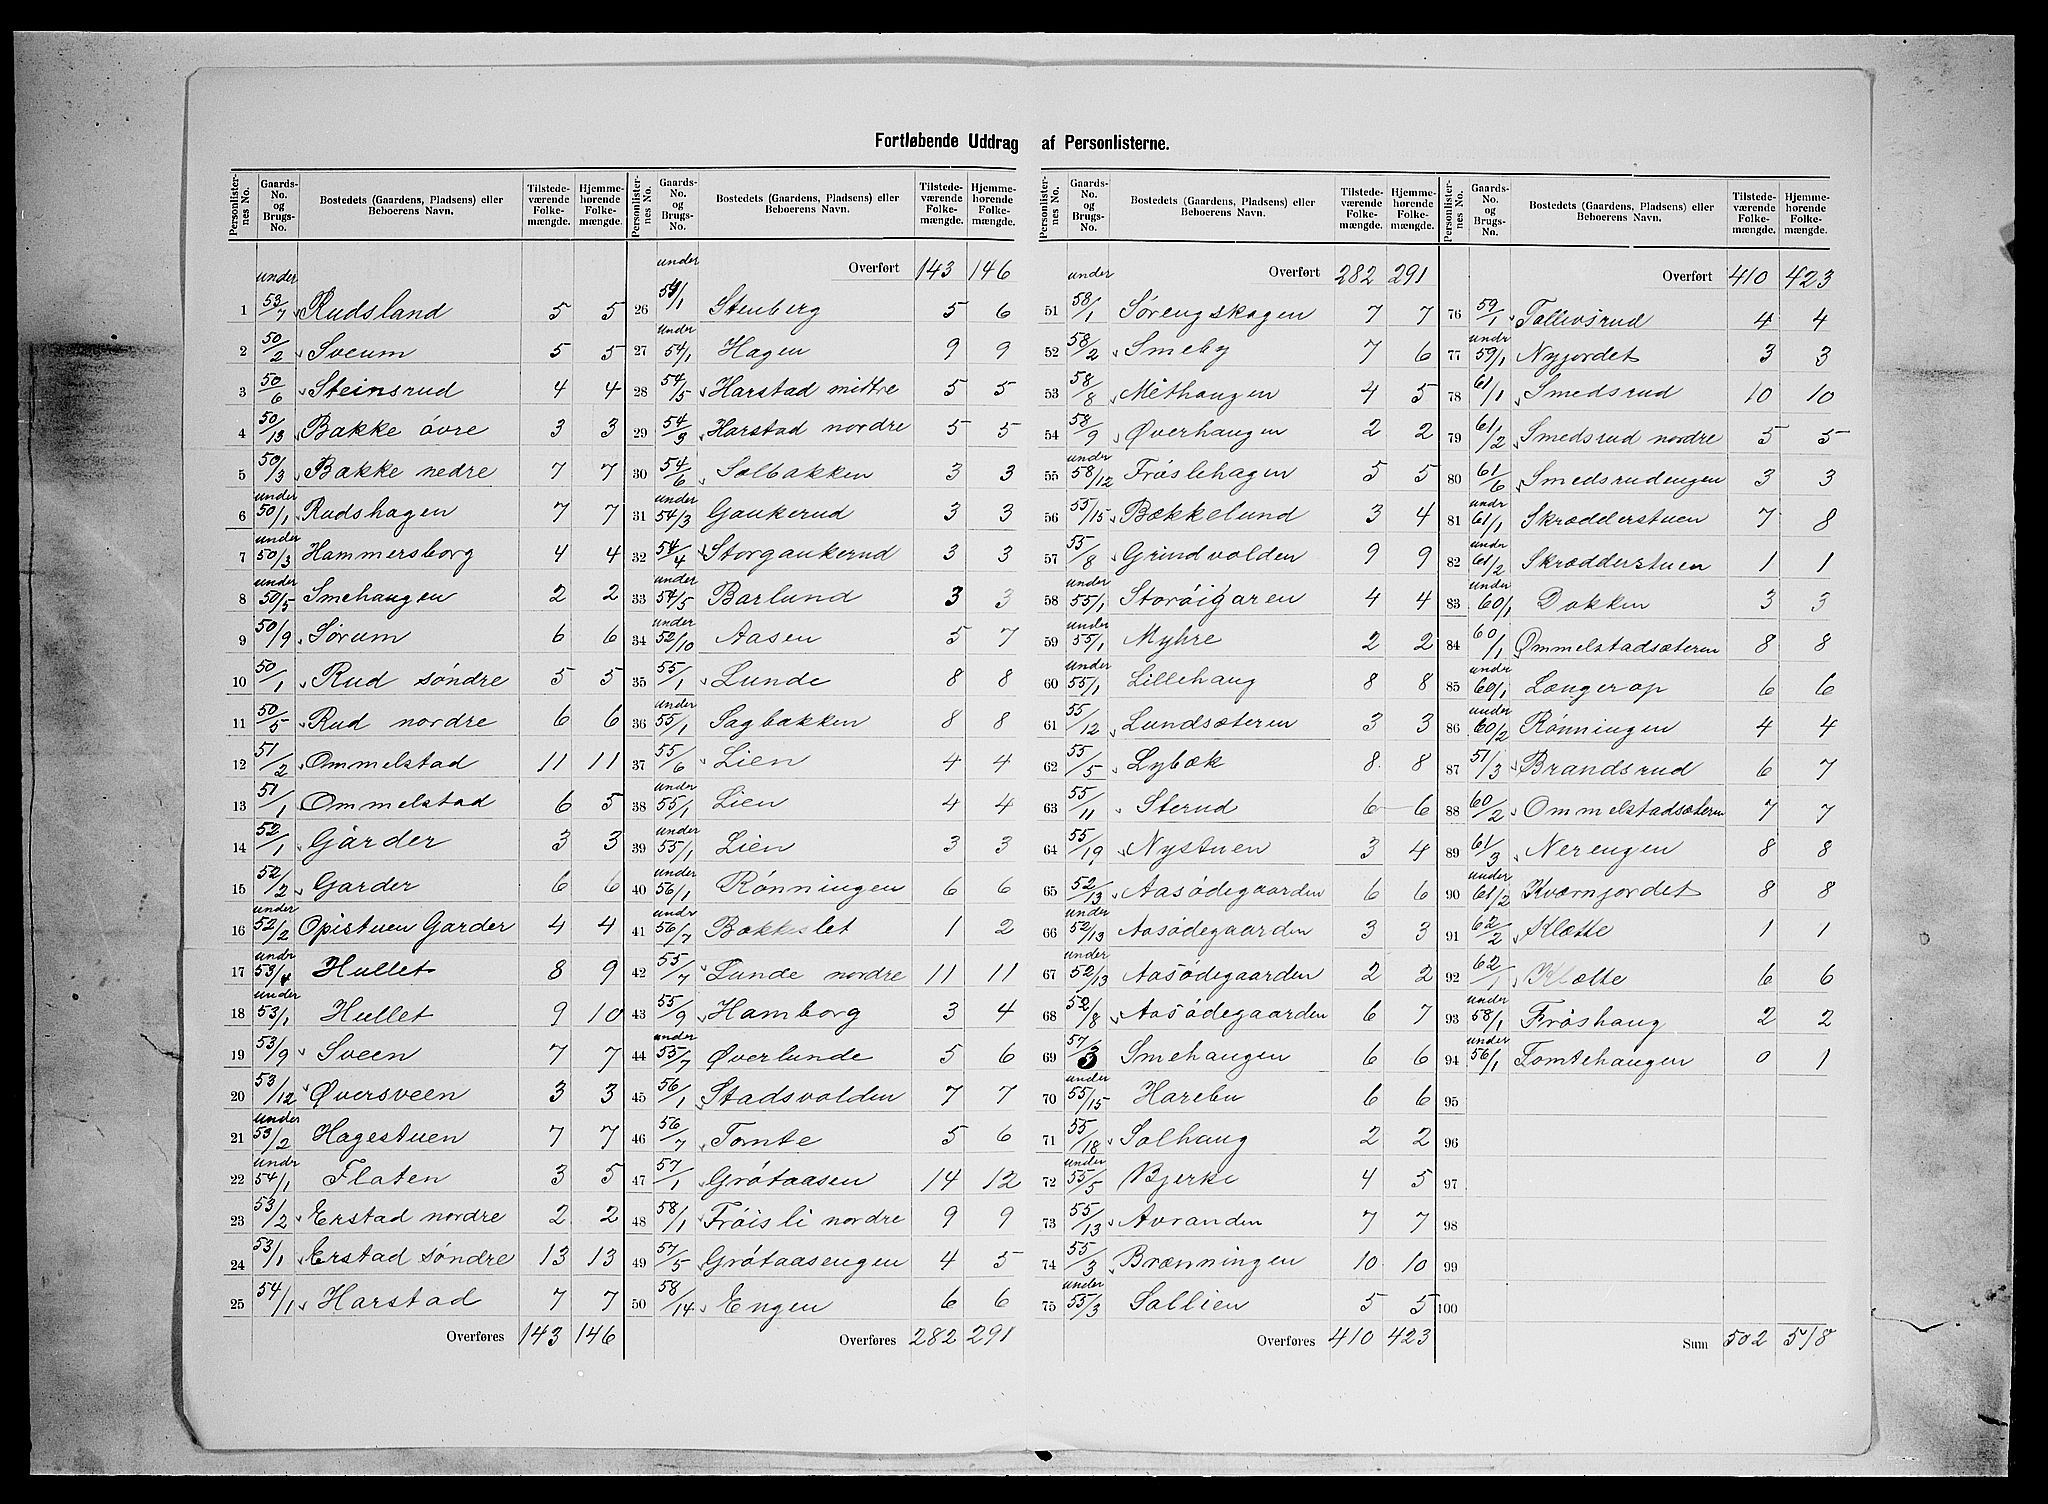 Fortløbende Uddrag af Personlisterne.
Personlister-nes No. | Gaards-No. og Brugs-No. | Bostedets (Gaardens, Pladsens) eller Beboerens Navn. | Tilstede-værende Folke-mængde. | Hjemme-hørende Folke-mængde.
1 under 53/7 Rudsland 5 5
2 50/2 Sveum 5 5
3 50/6 Steinsrud 4 4
4 50/13 Bakke øvre 3 3
5 50/3 Bakke nedre 7 7
6 under 50/1 Rudshagen 7 7
7 under 50/3 Hammersborg 4 4
8 under 50/5 Smehaugen 2 2
9 50/9 Sørum 6 6
10 50/1 Rud søndre 5 5
11 50/5 Rud nordre 6 6
12 51/2 Ommelstad 11 11
13 51/1 Ommelstad 6 5
14 52/1 Garder 3 3
15 52/2 Garder 6 6
16 under 52/2 Opistuen Garder 4 4
17 under 53/1 Hullet 8 9
18 under 53/1 Hullet 9 10
19 53/9 Sveen 7 7
20 53/12 Øversveen 3 3
21 under 53/2 Hagestuen 7 7
22 under 54/1 Flaten 3 5
23 53/2 Erstad nordre 2 2
24 53/1 Erstad søndre 13 13
25 54/1 Harstad 7 7
Overføres 143 146
Personlister-nes No. | Gaards-No. og Brugs-No. | Bostedets (Gaardens, Pladsens) eller Beboerens Navn. | Tilstede-værende Folke-mængde. | Hjemme-hørende Folke-mængde.
Overført 143 146
26 under 54/1 Stenberg 5 6
27 under 54/1 Hagen 9 9
28 54/5 Harstad midtre 5 5
29 54/3 Harstad nordre 5 5
30 54/6 Solbakken 3 3
31 under 54/3 Gaukerud 3 3
32 54/4 Storgaukerud 3 3
33 under 54/5 Barlund 3 3
34 under 52/10 Aasen 5 7
35 55/1 Lunde 8 8
36 under 55/1 Sagbakken 8 8
37 55/6 Lien 4 4
38 under 55/1 Lien 4 4
39 under 55/1 Lien 3 3
40 under 56/1 Rønningen 6 6
41 undr 56/7 Bækkeslet 1 2
42 55/7 Lunde nordre 11 11
43 55/9 Hamborg 3 4
44 under 55/7 Øverlunde 5 6
45 56/1 Stadsvolden 7 7
46 56/7 Tomte 5 6
47 57/1 Grøtaasen 14 12
48 58/1 Frøisli nordre 9 9
49 57/5 Grøtaasengen 4 5
50 58/14 Engen 6 6
Overføres 282 291
Personlister-nes No. | Gaards-No. og Brugs-No. | Bostedets (Gaardens, Pladsens) eller Beboerens Navn. | Tilstede-værende Folke-mængde. | Hjemme-hørende Folke-mængde.
Overført 282 291
51 under 58/1 Sørengskogen 7 7
52 58/2 Smeby 7 6
53 58/8 Methaugen 4 5
54 58/9 Øverhaugen 2 2
55 under 58/12 Frøslehagen 5 5
56 55/15 Bækkelund 3 4
57 55/8 Grindvolden 9 9
58 under 55/1 Storøigaren 4 4
59 under 55/1 Myhre 2 2
60 under 55/1 Lillehaug 8 8
61 55/12 Lundsæteren 3 3
62 55/5 Lybæk 8 8
63 55/11 Sterud 6 6
64 55/19 Nystuen 3 4
65 52/13 Aasødegaarden 6 6
66 under 52/13 Aasødegaarden 3 3
67 under 52/13 Aasødegaarden 2 2
68 52/8 Aasødegaarden 6 7
69 57/3 Smehaugen 6 6
70 under 55/15 Harebu 6 6
71 55/18 Solhaug 2 2
72 under 55/5 Bjerke 4 5
73 55/13 Avranden 7 7
74 55/3 Brænningen 10 10
75 under 55/3 Sollien 5 5
Overføres 410 423
Personlister-nes No. | Gaards-No. og Brugs-No. | Bostedets (Gaardens, Pladsens) eller Beboerens Navn. | Tilstede-værende Folke-mængde. | Hjemme-hørende Folke-mængde.
Overført 410 423
76 59/1 Tollevsrud 4 4
77 undr 59/1 Nyjordet 3 3
78 61/1 Smedsrud 10 10
79 61/2 Smedsrud nordre 5 5
80 61/6 Smedsrudengen 3 3
81 undr 61/1 Skrædderstuen 7 8
82 undr 61/2 Skrædderstuen 1 1
83 under 60/1 Dokken 3 3
84 60/1 Ommelstadsæteren 8 8
85 under 60/1 Længerop 6 6
86 under 60/2 Rønningen 4 4
87 51/3 Brandsrud 6 7
88 60/2 Ommelstadsæteren 7 7
89 61/3 Nerengen 8 8
90 under 61/2 Kværnjordet 8 8
91 62/2 Klætte 1 1
92 62/1 Klætte 6 6
93 under 58/1 Frøshaug 2 2
94 under 56/1 Tomtehaugen 0 1
95
96
97
98
99
100
Sum 502 518